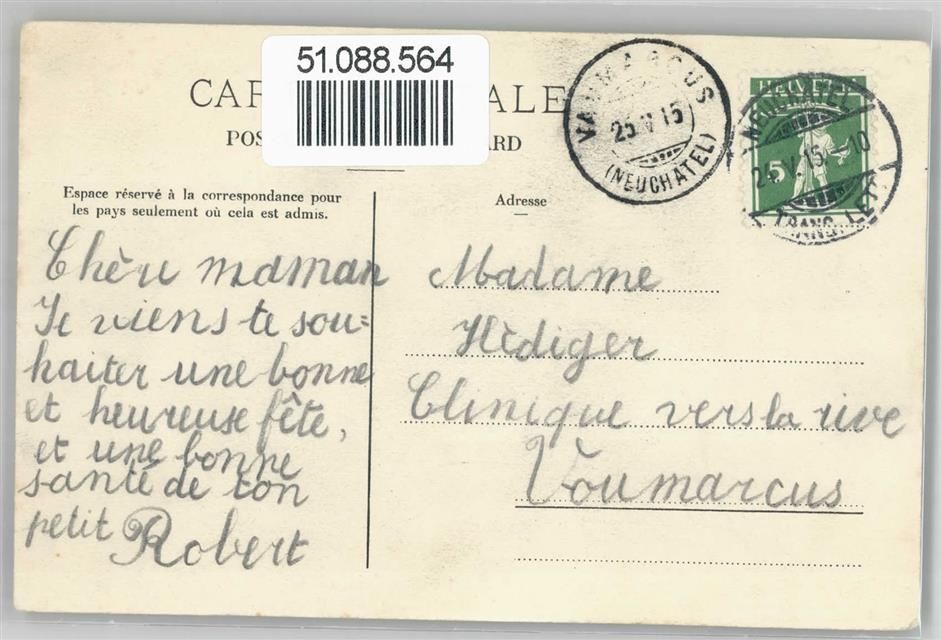 51.088.564
CAR ALE
POS ARD
Espace réservé à la correspondance pour
les pays seulement où cela est admis.
Adresse
VAUMARCUS
25 V 15
(NEUCHATEL)
HELVETIA
5
NEUCHATEL
24.V.15.-10
Chère maman
Je viens te sou=
haiter une bonne
et heureuse fête,
et une bonne
santé de ton
petit Robert
Madame
Hédiger
Clinique vers la rive
Voumarcus